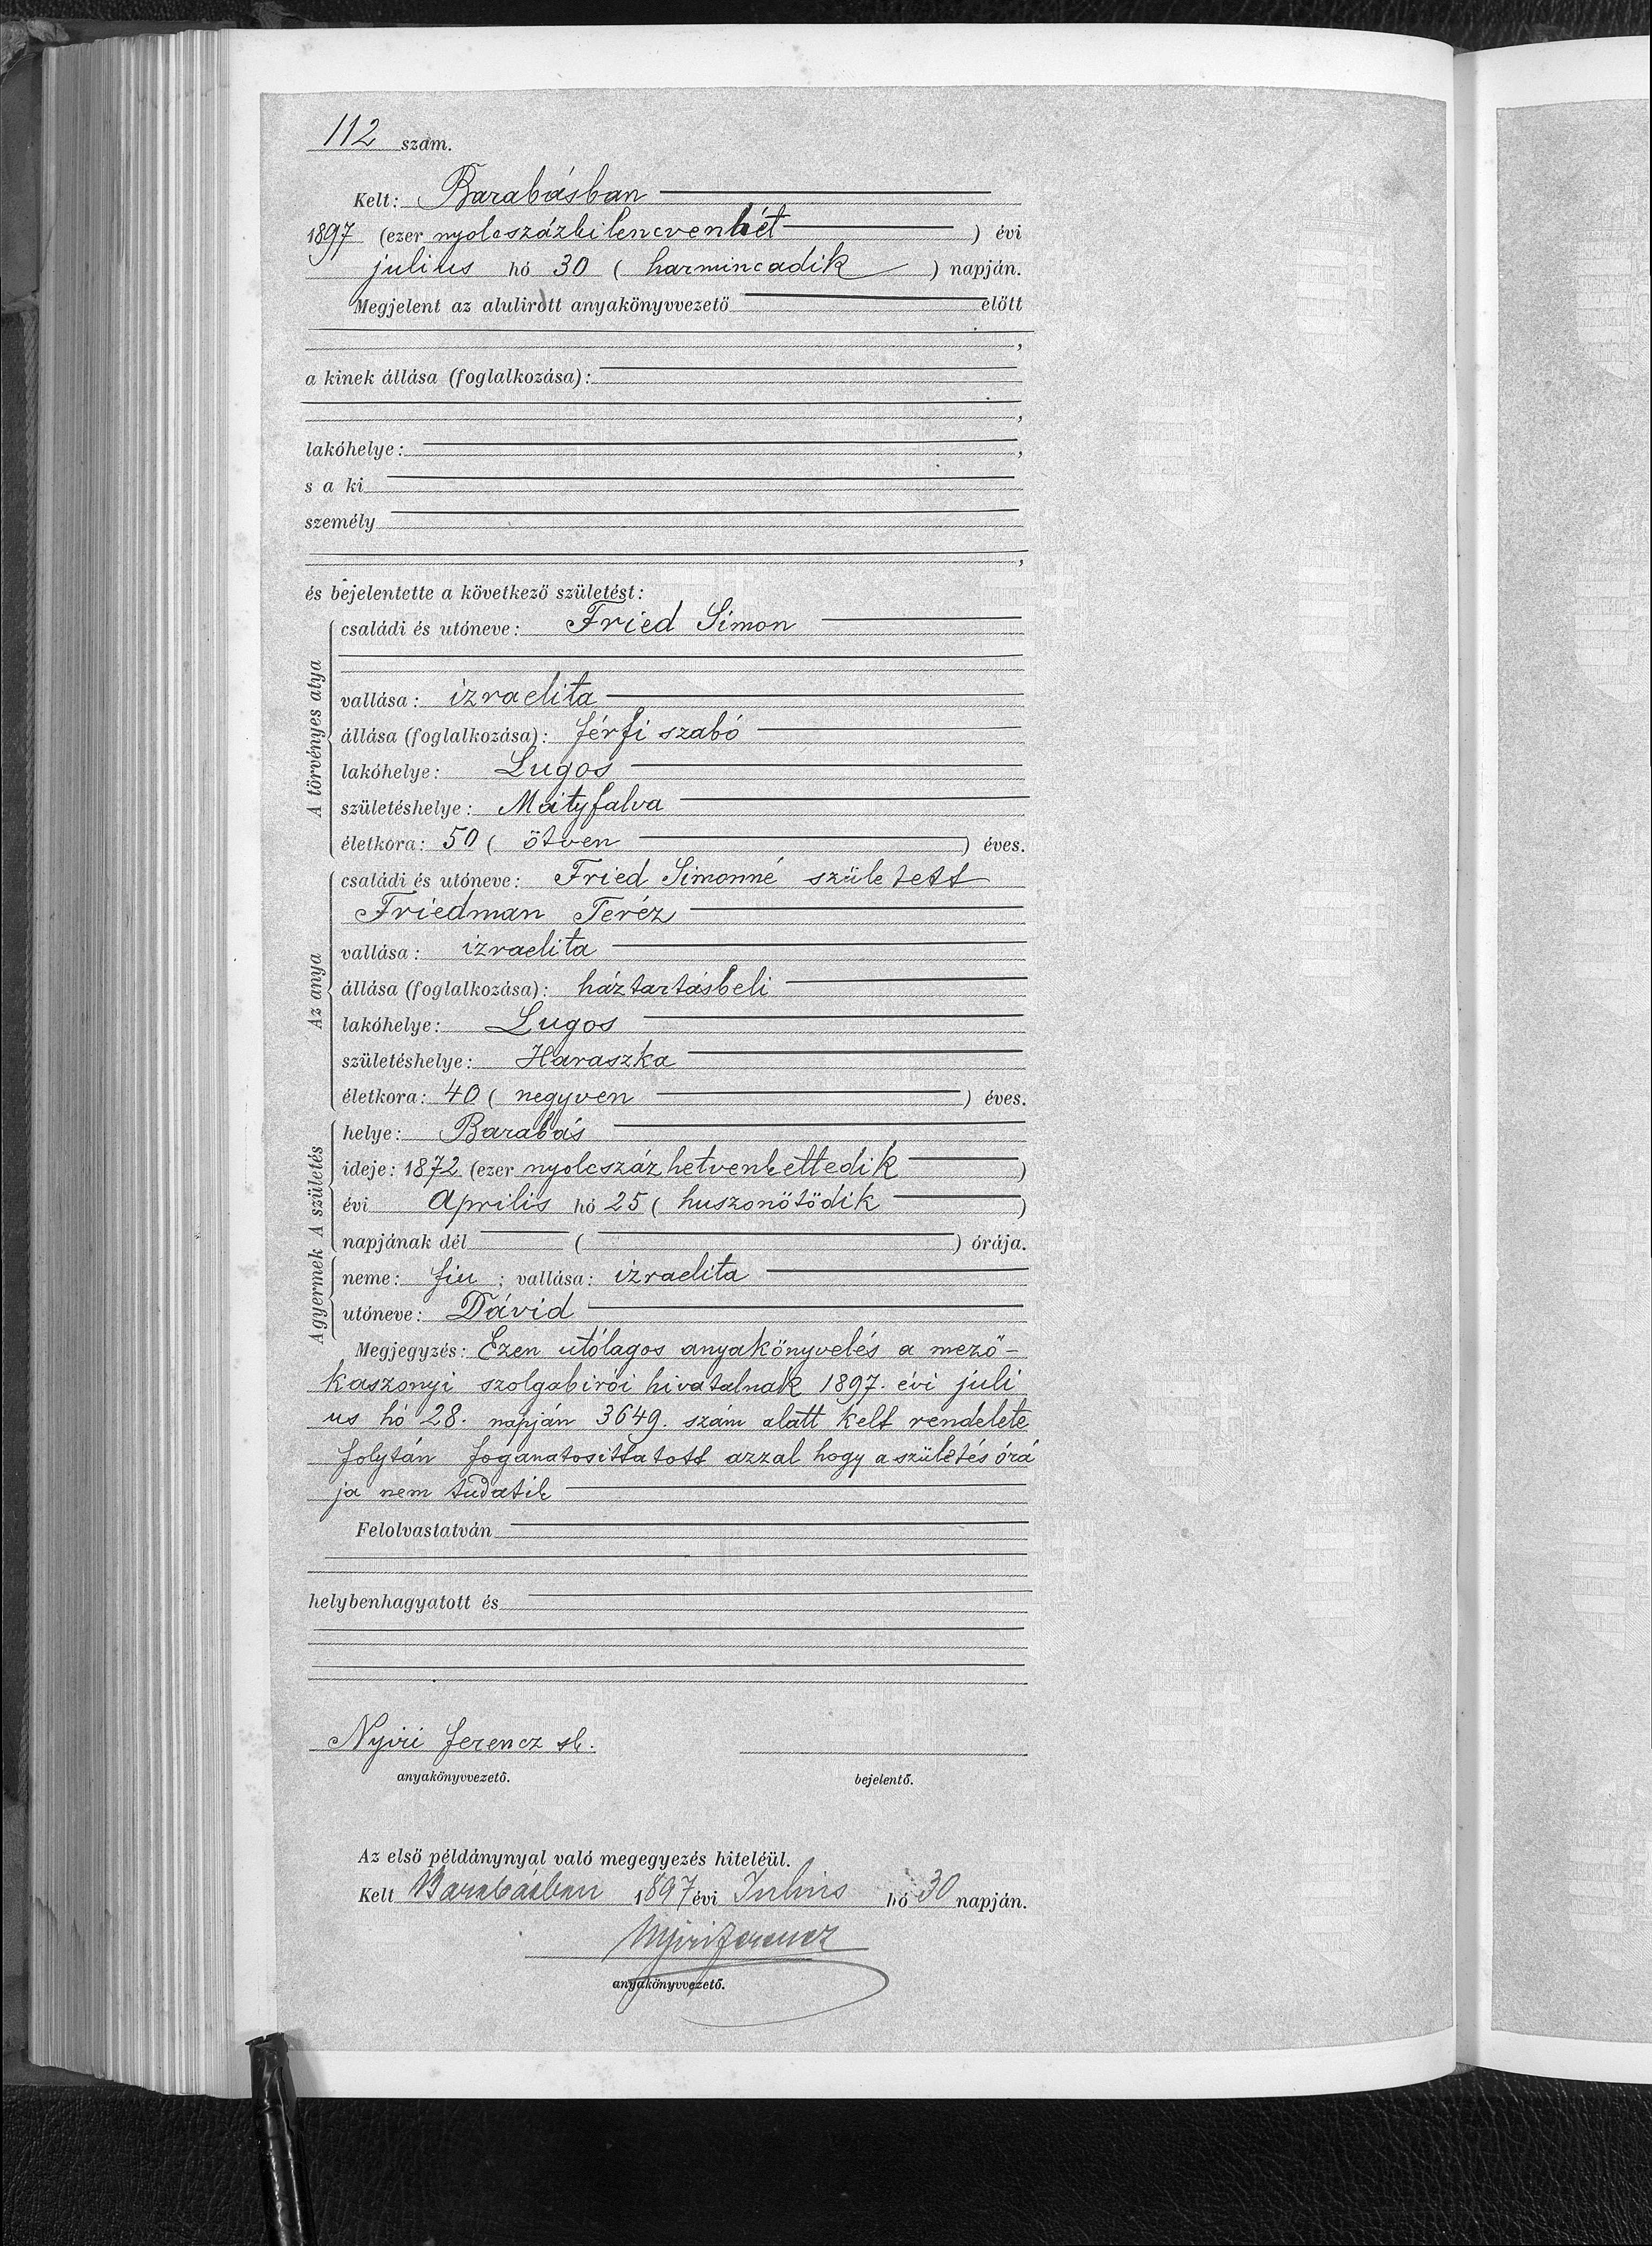 112 szám.
Kelt: Barabásban
1897 (ezer nyolcszázkilencvenhét) évi
julius hó 30 (harmincadik) napján.
Megjelent az alulirott anyakönyvvezető előtt
,
a kinek állása (foglalkozása):
,
lakóhelye: ,
s a ki
személy
,
és bejelentette a következő születést:
A törvényes atya
családi és utóneve: Fried Simon
vallása: izraelita
állása (foglalkozása): férfi szabó
lakóhelye: Lugos
születéshelye: Mátyfalva
életkora: 50 (ötven) éves.
Az anya
családi és utóneve: Fried Simonné született
Friedman Teréz
vallása: izraelita
állása (foglalkozása): háztartásbeli
lakóhelye: Lugos
születéshelye: Haraszka
életkora: 40 (negyven) éves.
A gyermek A születés
helye: Barabás
ideje: 1872 (ezer nyolcszáz hetvenkettedik)
évi Aprilis hó 25 (huszonötödik)
napjának dél ( ) órája.
neme: fiu ; vallása: izraelita
utóneve: Dávid
Megjegyzés: Ezen utólagos anyakönyvelés a mező-
kaszonyi szolgabirói hivatalnak 1897. évi juli
us hó 28. napján 3649. szám alatt kelt rendelete
folytán foganatosittatott azzal hogy a születés órá
ja nem tudatik
Felolvastatván
helybenhagyatott és
Nyiri Ferencz sk.
anyakönyvvezető. bejelentő.
Az első példánynyal való megegyezés hiteléül.
Kelt Barabásban 1897 évi Julius hó 30 napján.
Nyiri Ferencz
anyakönyvvezető.